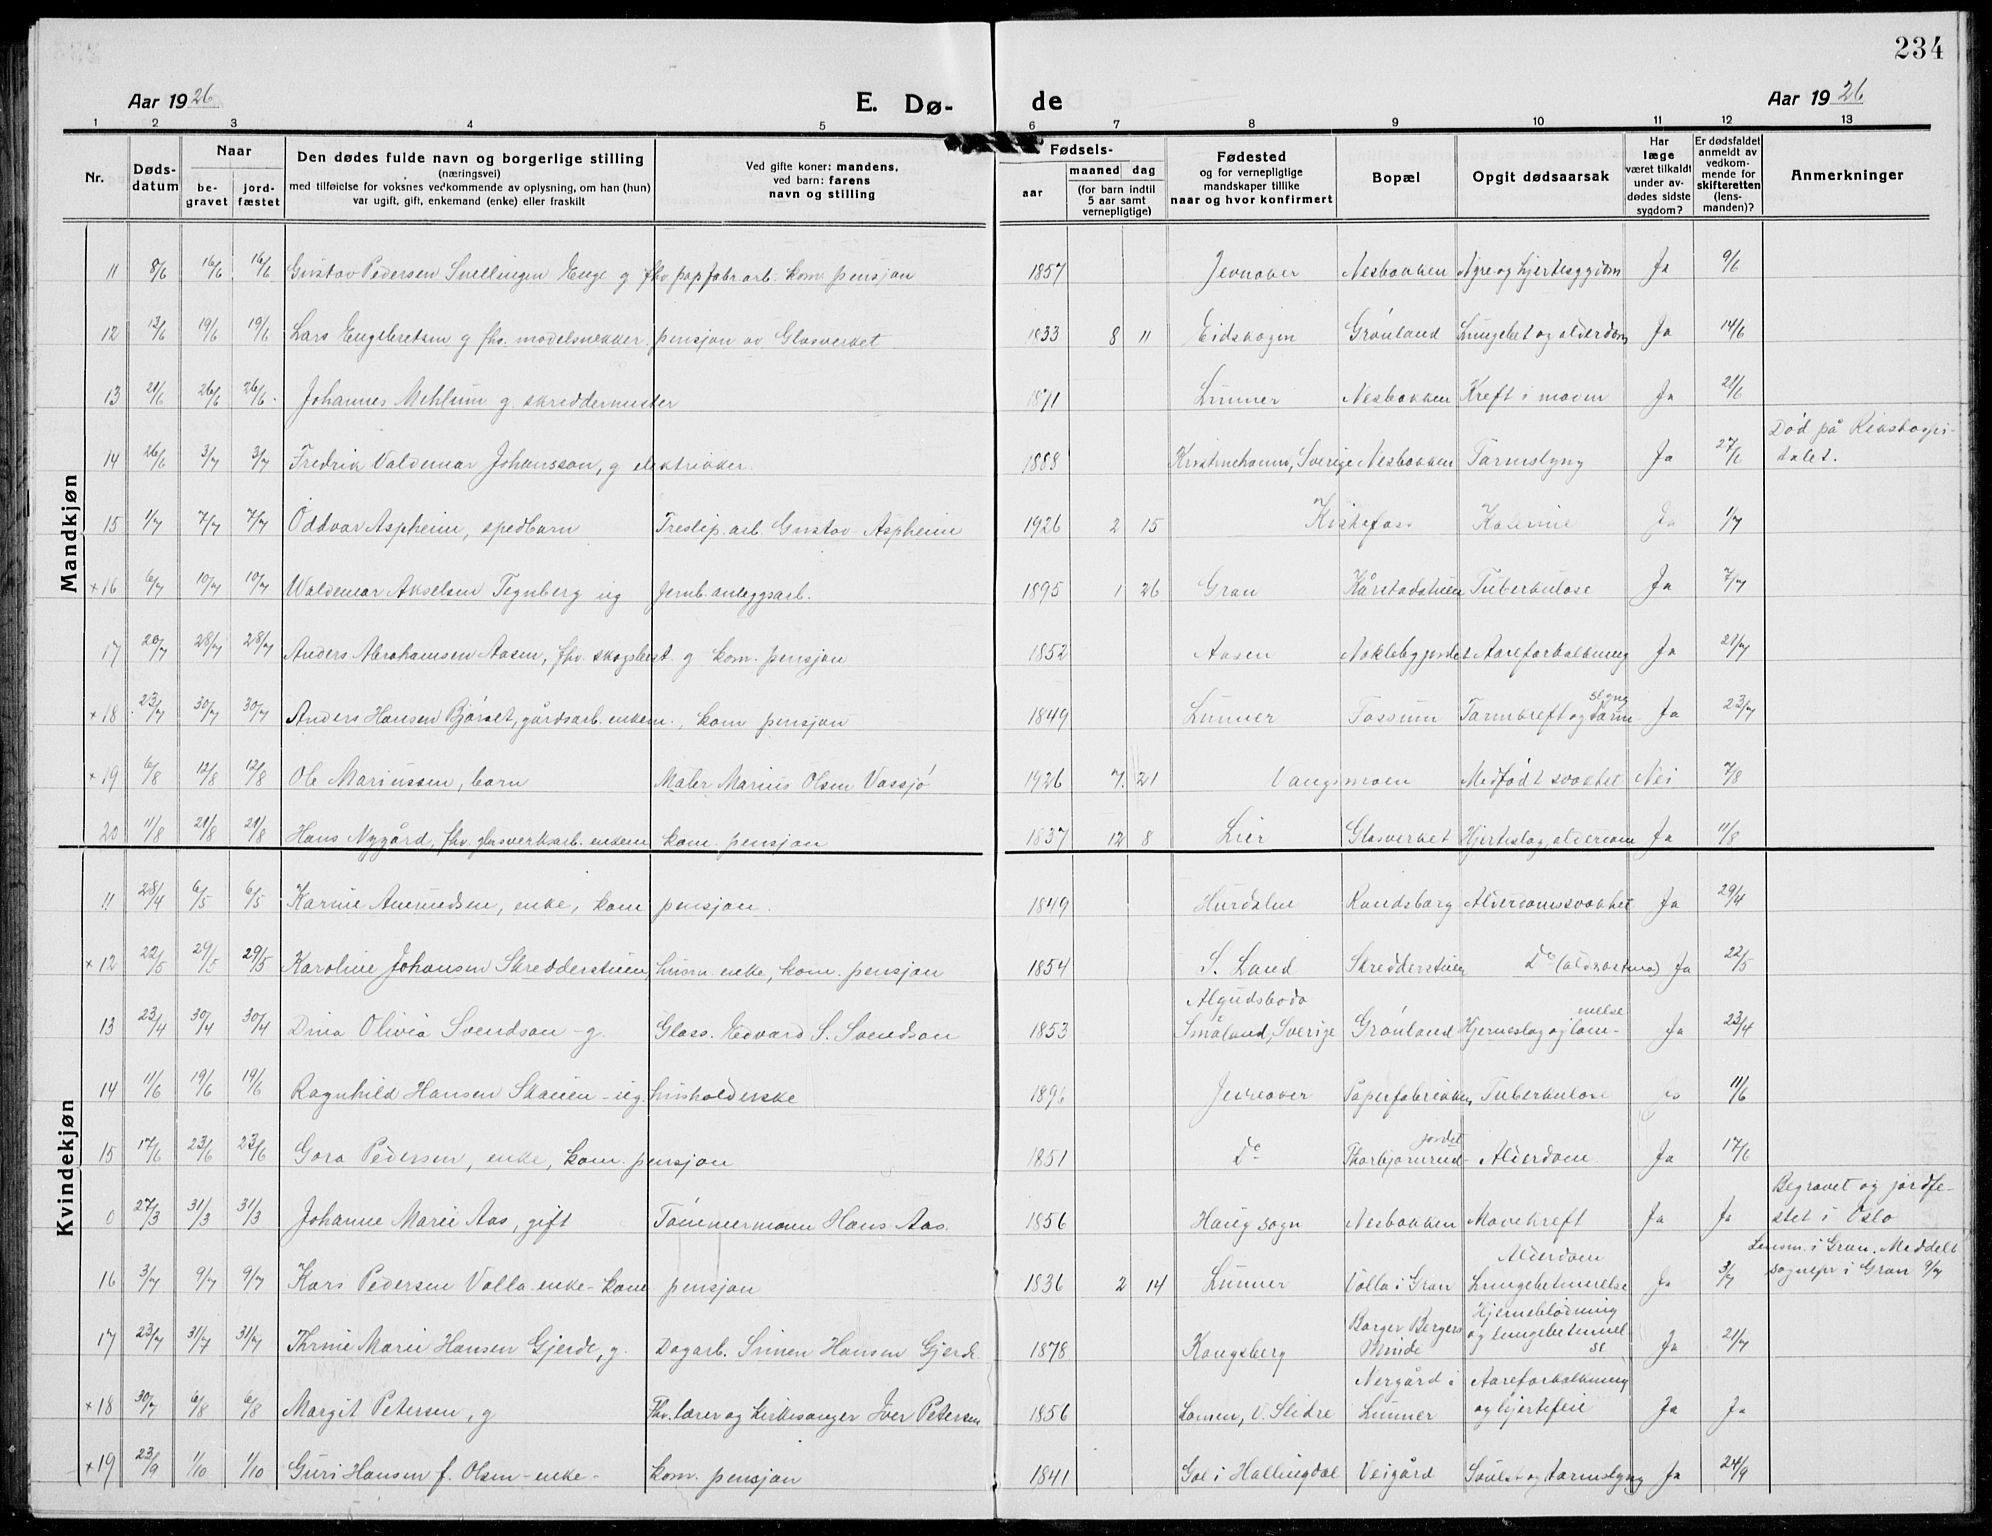 234
Aar 1926 E. Dø- de Aar 1926
1 2 3 4 5 6 7 8 9 10 11 12 13
Nr. Døds-datum Naar be-gravet jord-fæstet Den dødes fulde navn og borgerlige stilling (næringsvei) med tilføielse for voksnes vedkommende av oplysning, om han (hun) var ugift, gift, enkemand (enke) eller fraskilt Ved gifte koner: mandens, ved barn: farens navn og stilling Fødsels- aar maaned dag (for barn indtil 5 aar samt vernepligtige) Fødested og for vernepligtige mandskaper tillike naar og hvor konfirmert Bopæl Opgit dødsaarsak Har læge været tilkaldt under av-dødes sidste sygdom? Er dødsfaldet anmeldt av vedkom-mende for skifteretten (lens-manden)? Anmerkninger
Mandkjøn
11 8/6 16/6 16/6 Gustav Pedersen Snellingen Enge g fhv papfabr arb. kom. pensjon 1857 Jevnaker Nesbakken Nyre og hjertesygdom Ja 9/6
12 13/6 19/6 19/6 Lars Engebretsen g fhv. modelsnekker. pensjon av Glasverket 1833 8 11 Eidskogen Grønland Lungebet og alderdom Ja 14/6
13 21/6 26/6 26/6 Johannes Mehlum g. skreddermester 1871 Lunner Nesbakken Kreft i maven Ja 21/6
14 26/6 3/7 3/7 Fredrik Valdemar Johansson, g elektrikker. 1888 Kristinehamn, Sverige Nesbakken Tarmslyng Ja 27/6 Død på Rikshospi-
talet.
15 1/7 7/7 7/7 Oddvar Aspheim, spedbarn Treslip. arb. Gustav Aspheim 1926 2 15 Kistefoss Kolerine Ja 1/7
×16 6/7 10/7 10/7 Waldemar Akselsen Tegnberg ug Jernb. anleggsarb. 1895 1 26 Gran Kårstadstuen Tuberkulose Ja 7/7
17 20/7 28/7 28/7 Anders Abrahamsen Aasen, fhv. skogsbest. g kom. pensjon 1852 Aasen Noklebyjordet Aareforkalkning Ja 21/7
×18 23/7 30/7 30/7 Anders Hansen Bjørset, gårdsarb. enkem., kom pensjon 1849 Lunner Fossum Tarmkreft og Tarm slyng Ja 23/7
×19 6/8 12/8 12/8 Ole Mariussen, barn Maler Marius Olsen Vassjø 1926 7. 21 Vangsmoen Medfødt svakhet Nei 7/8
20 11/8 21/8 21/8 Hans Nygård, fhv. glasverksarb. enkem kom. pensjon 1837 12 8 Lier Glasverket Hjerteslag, alderdom Ja 11/8
Kvindekjøn
11 28/4 6/5 6/5 Karine Amundsen, enke, kom pensjon. 1849 Hurdalen Randsborg Alderdomssvakhet Ja 29/4
×12 22/5 29/5 29/5 Karoline Johansen Skredderstuen, husm. enke, kom. pensjon 1854 S. Land Skredderstuen Do (aldrastma) Ja 22/5
13 23/4 30/4 30/4 Dina Olivia Svendson - g Glass. Edvard S. Svendson 1853 Algudsboda Småland, Sverige Grønland Hjerneslag og lam-melse Ja 23/4
14 11/6 19/6 19/6 Ragnhild Hansen Skauen - ug. husholderske 1896 Jevnaker Paperfabrikken, Tuberkulose Ja 11/6
15 17/6 23/6 23/6 Gora Pedersen, enke, kom. pensjon 1851 Do Thorbjørnrud-jordet Alderdom Ja 17/6
0 27/3 31/3 31/3 Johanne Marie Aas, gift Tømmermann Hans Aas. 1856 Haug sogn Nesbakken Mavekreft Ja Ja Begravet og jordfe-
stet i Oslo
16 3/7 9/7 9/7 Kari Pedersen Volla enke - kom pensjon 1836 2 14 Lunner Volla i Gran Alderdom Lungebetennelse Ja 3/7 Lensm. i Gran. Meddelt
sognepr i Gran 9/7
17 23/7 31/7 31/7 Thrine Marie Hansen Gjerde, g. Dagarb. Simen Hansen Gjerde 1878 Kongsberg Borger Bergers Minde Hjerneblødning og lungebetennel-se Ja 21/7
×18 30/7 6/8 6/8 Margit Petersen, g Fhv. lærer og kirkesanger Iver Petersen 1856 Lomen, V. Slidre Nergård i Lunner Aareforkalkning og hjertefeil Ja Ja
×19 23/9 1/10 1/10 Guri Hansen f. Olsen - enke - kom. pensjon 1841 Gol i Hallingdal Veigård Svulst og tarmslyng Ja 24/9